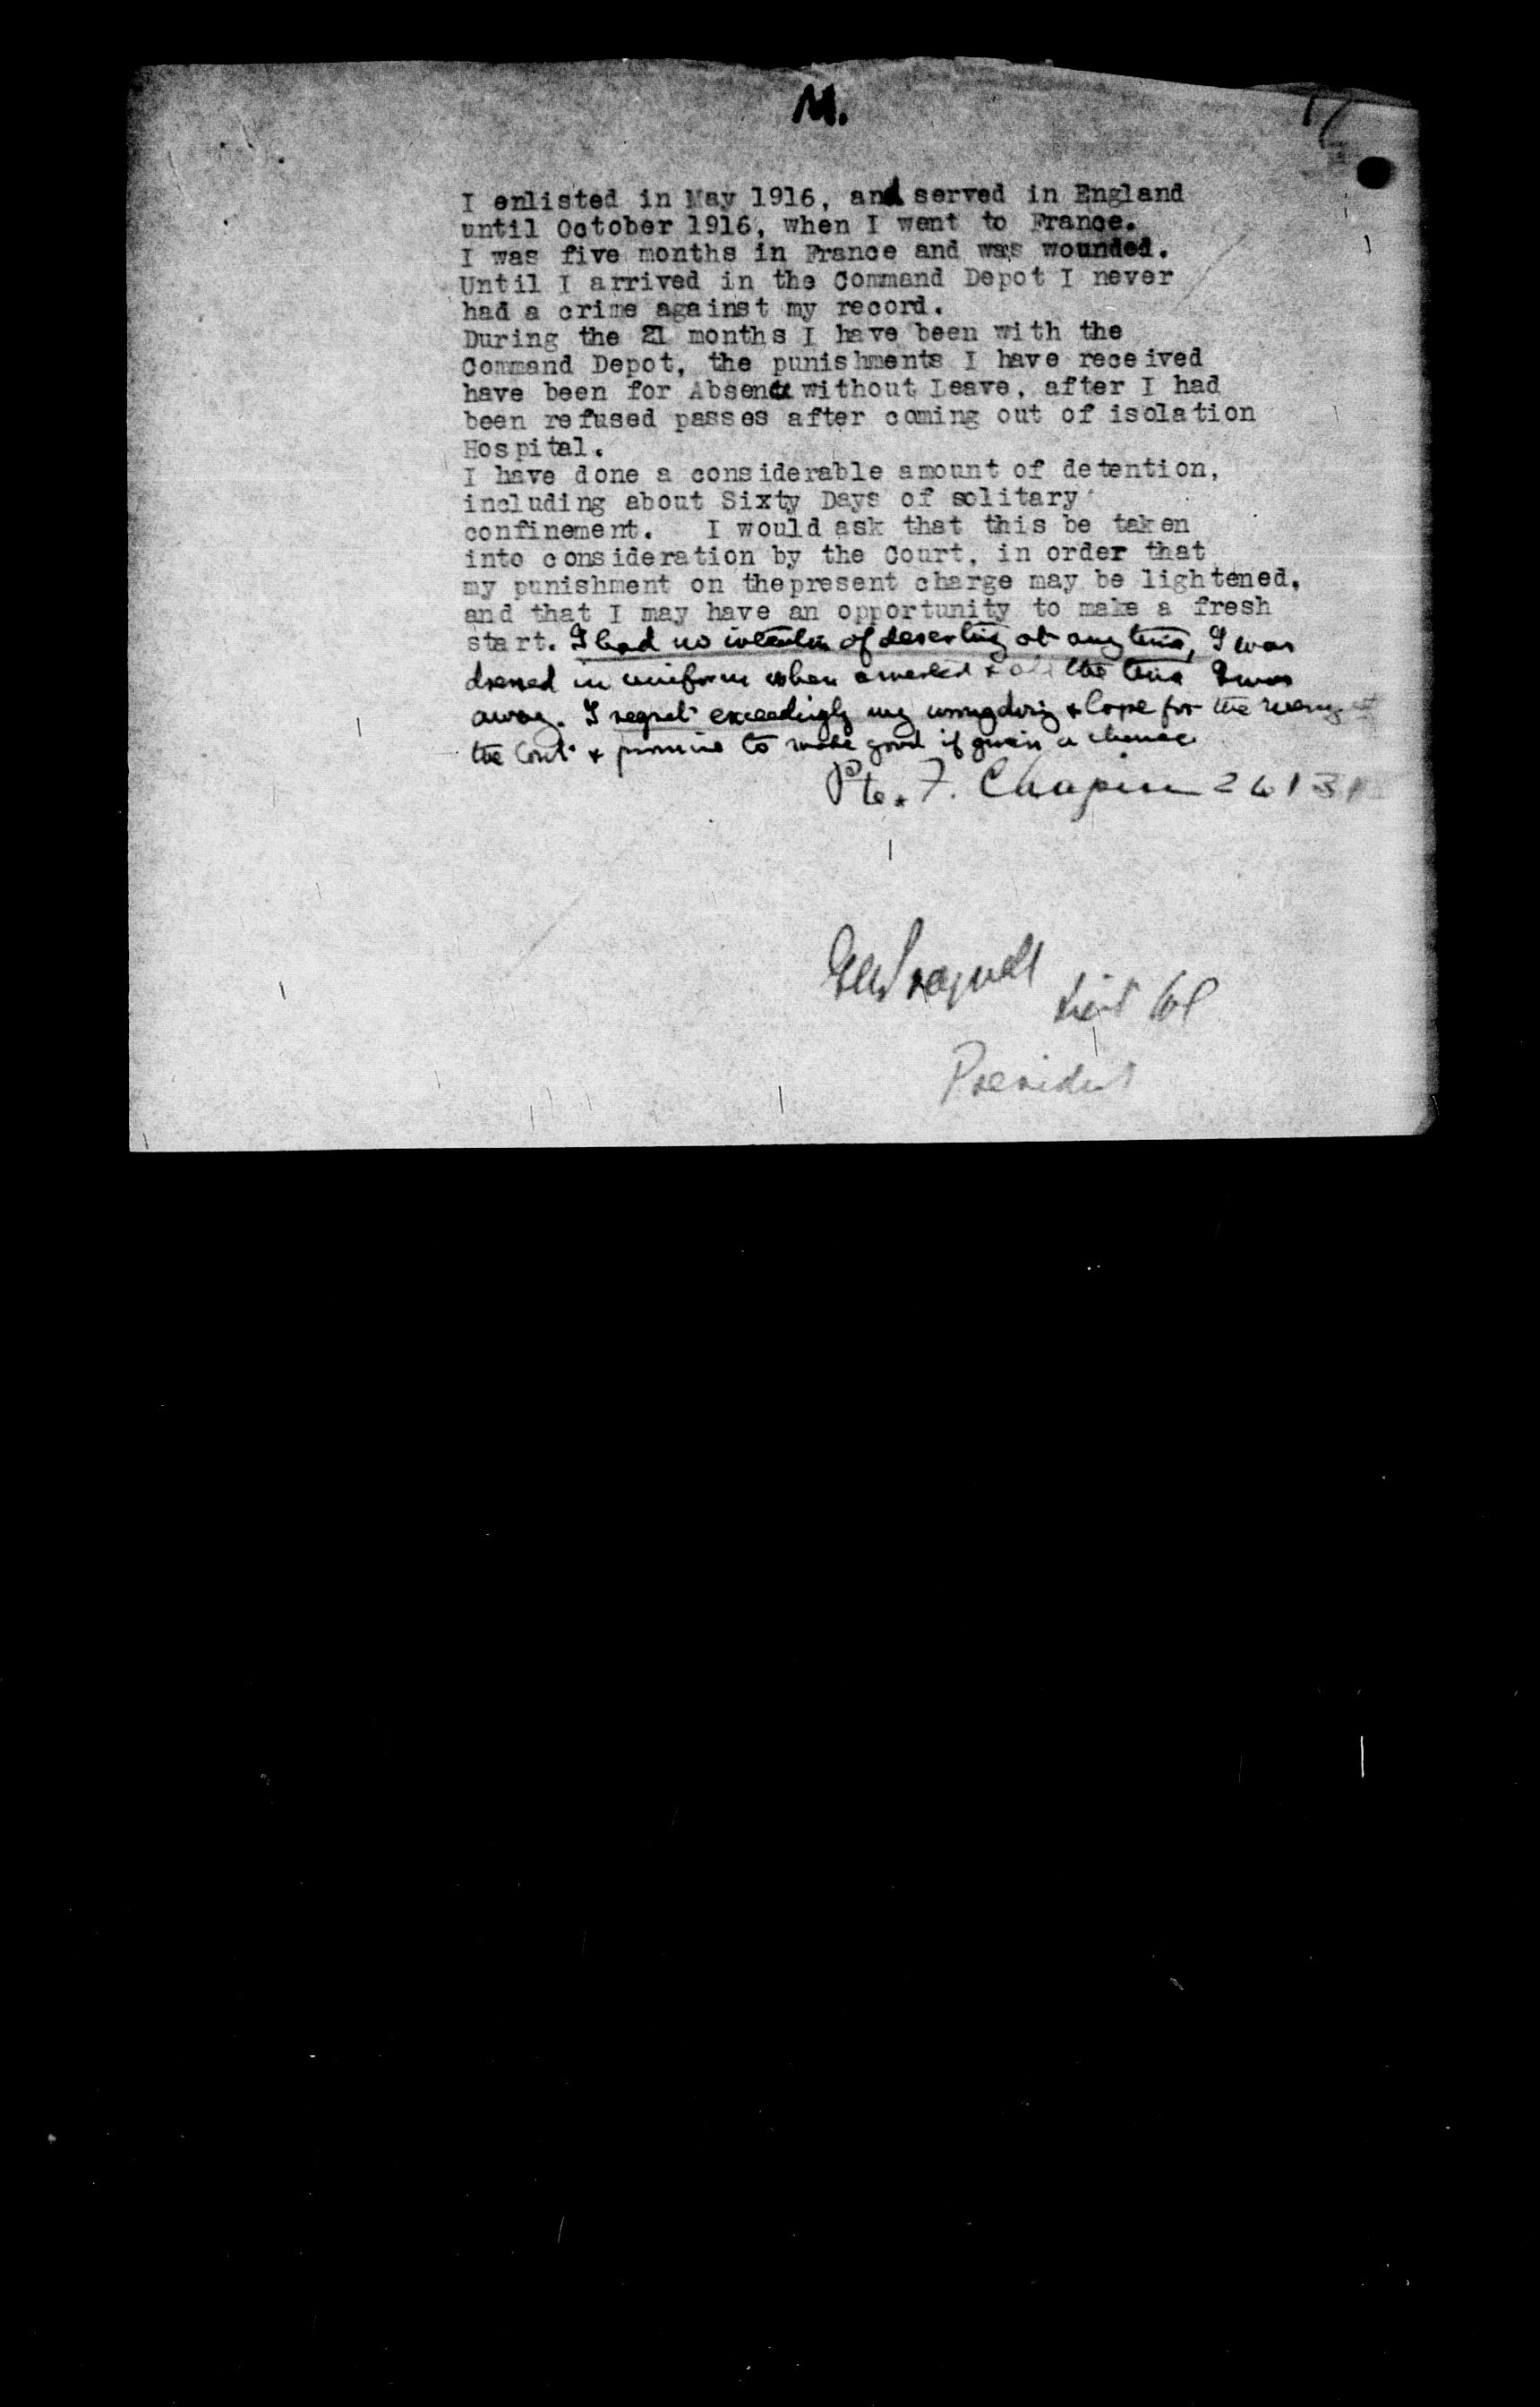 M.
17
I enlisted in May 1916, and served in England
until October 1916, when I went to France.
I was five months in France and was wounded.
Until I arrived in the Command Depot I never
had a crime against my record.
During the 21 months I have been with the
Command Depot, the punishments I have received
have been for Absence without Leave, after I had
been refused passes after coming out of isolation
Hospital.
I have done a considerable amount of detention,
including about Sixty Days of solitary
confinement. I would ask that this be taken
into consideration by the Court, in order that
my punishment on thepresent charge may be lightened,
and that I may have an opportunity to make a fresh
start. I had no intention of deserting at any time, I was
dressed in uniform when arrested & all the time I was
away. I regret exceedingly my wrongdoing & hope for the mercy of
the Court & promise to make good if given a chance
Pte. F. Chapin
Lieut Col
President